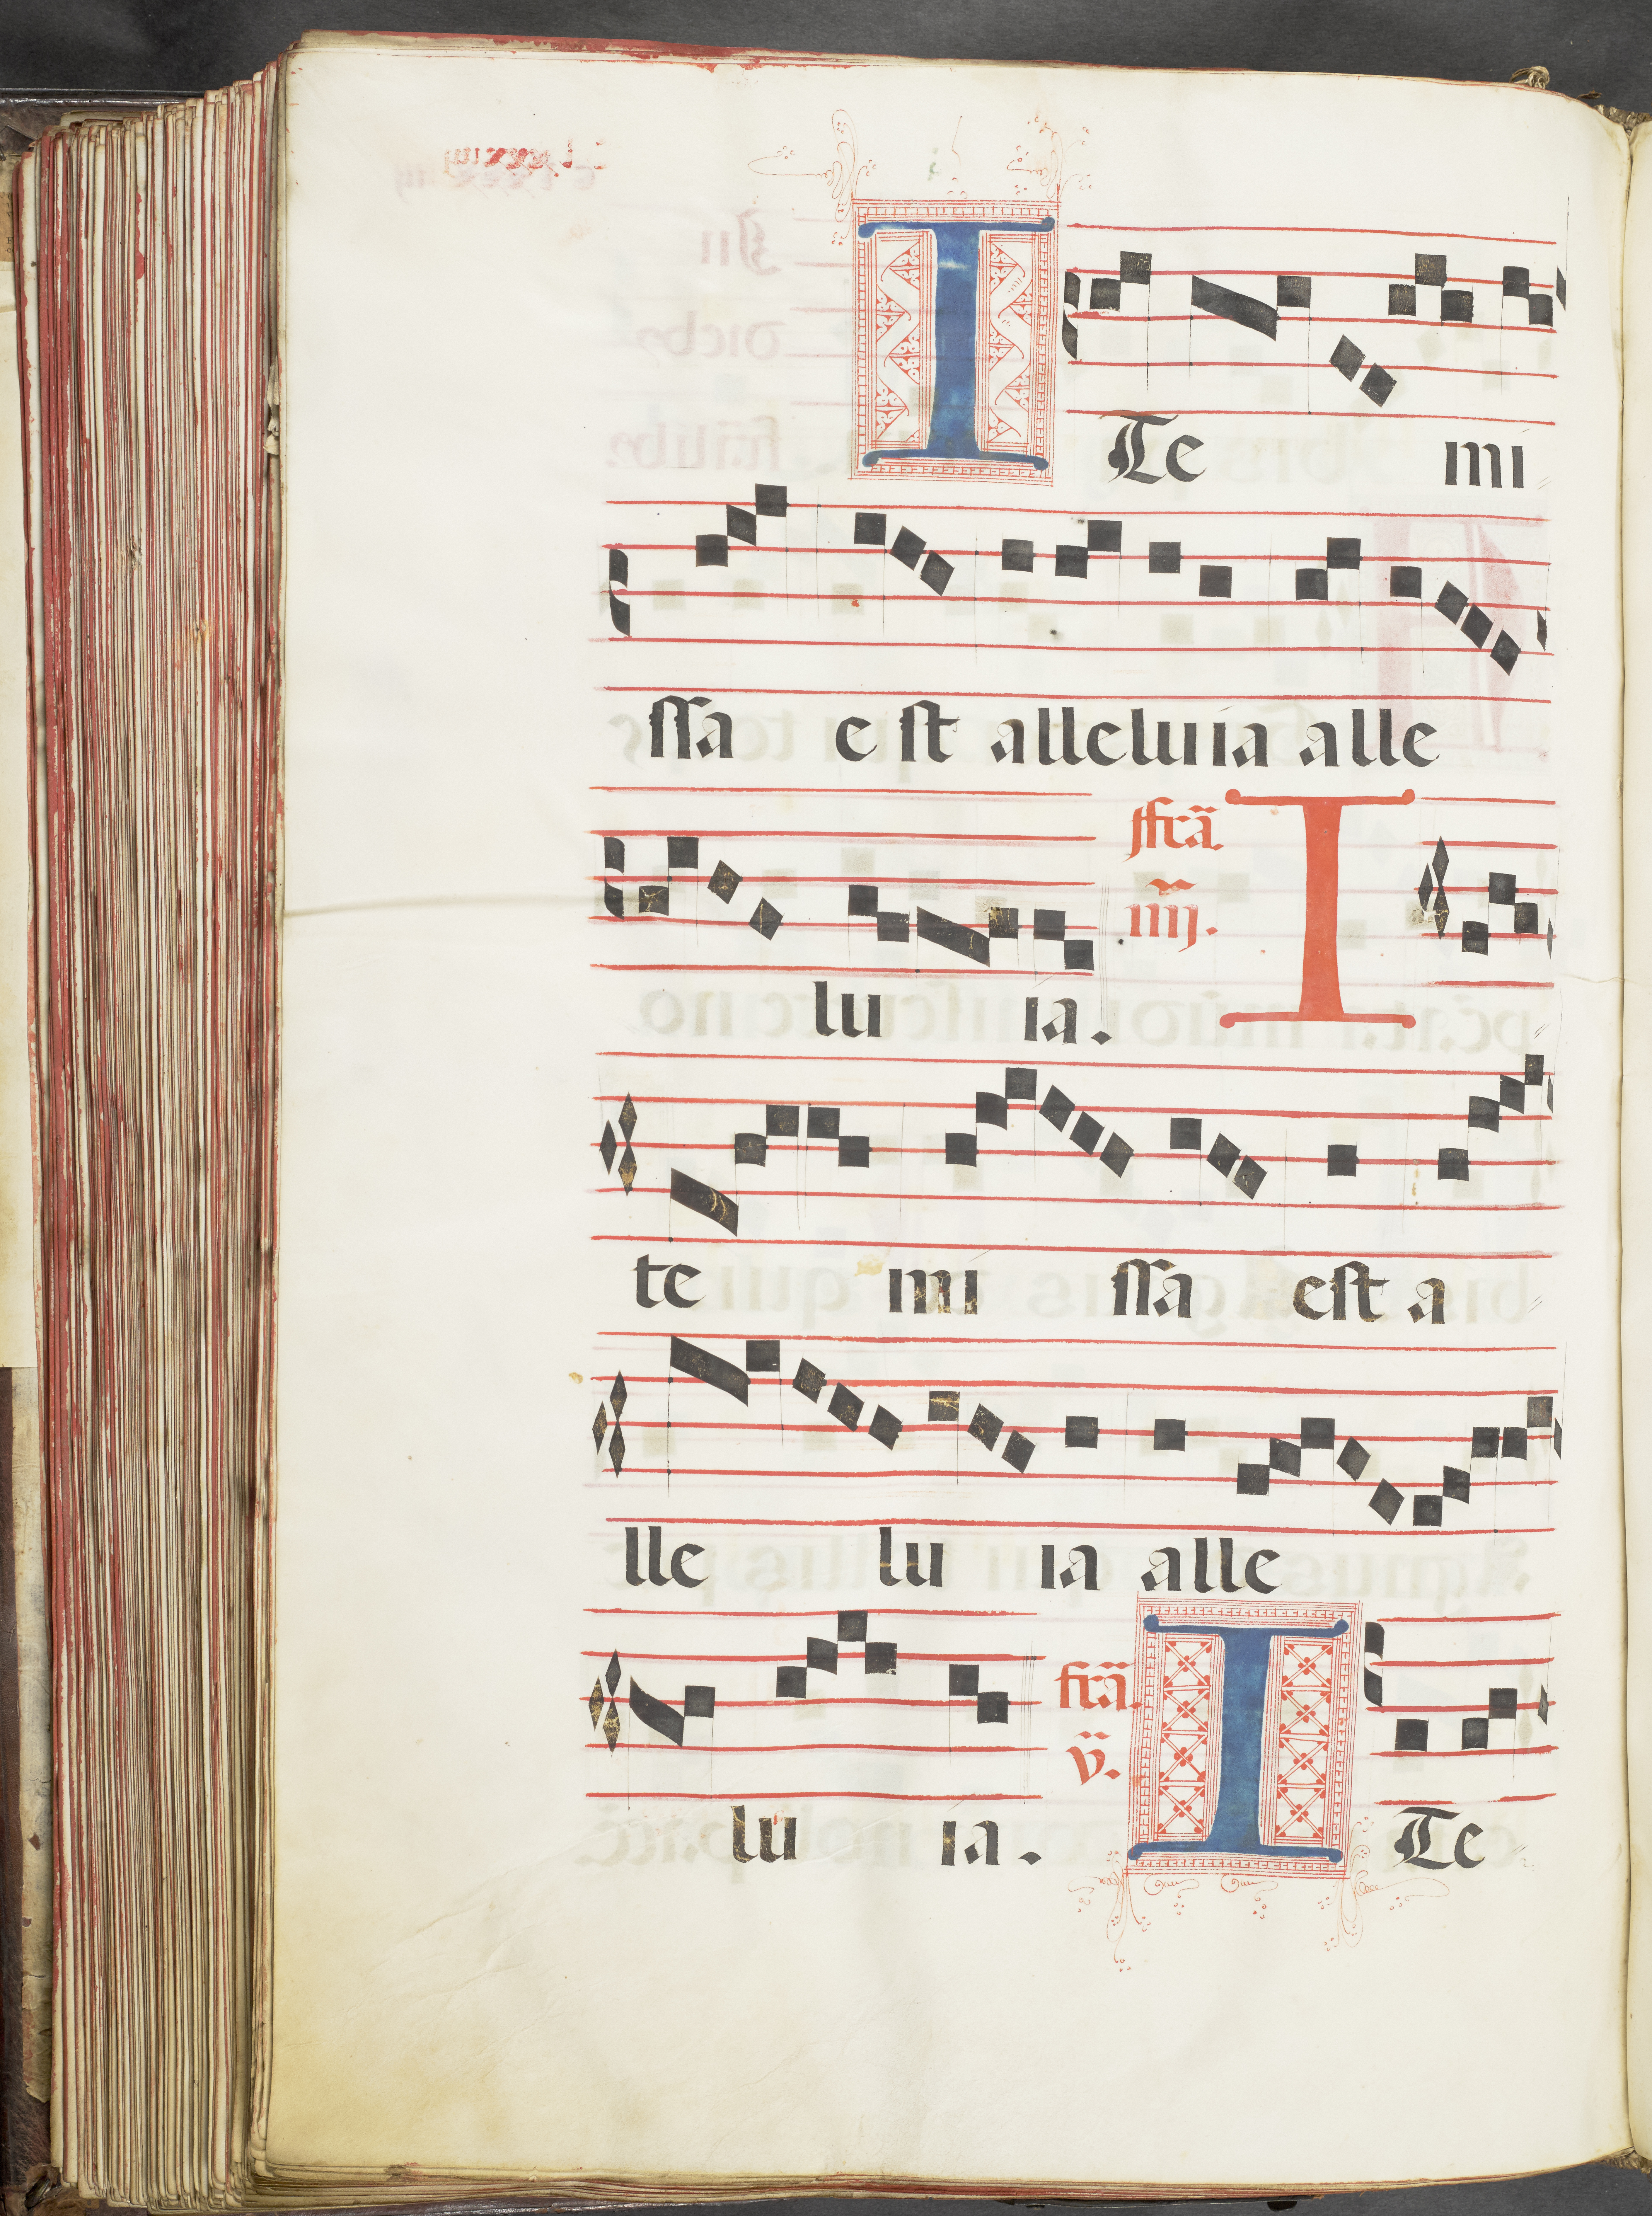 I Te mi
ssa e st alleluia alle
lu ia. ffrã. iiij̃. I
te mi ssa est a
lle lu ia alle
lu ia. frã. v̈. I Te